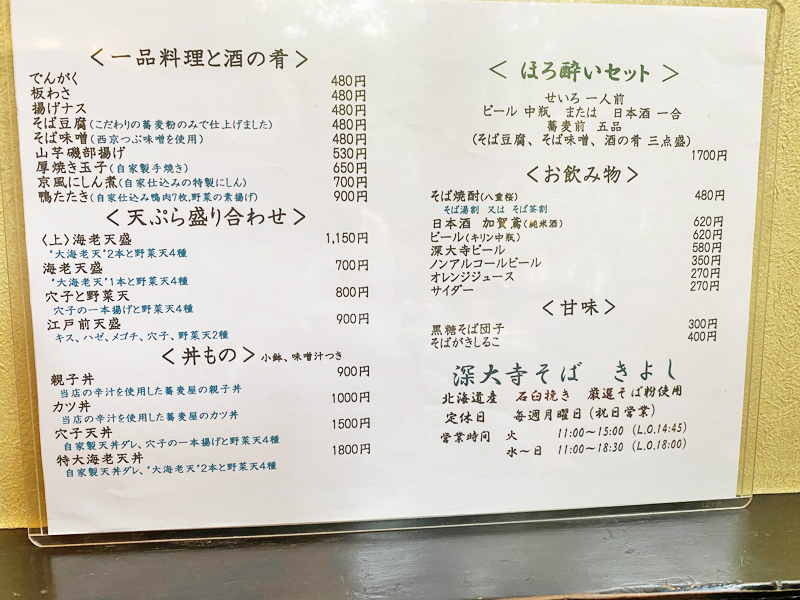 ＜一品料理と酒の肴＞
でんがく 480円
板わさ 480円
揚げナス 480円
そば豆腐(こだわりの蕎麦粉のみで仕上げました) 480円
そば味噌(西京つぶ味噌を使用) 480円
山芋磯部揚げ 530円
厚焼き玉子(自家製手焼き) 650円
京風にしん煮(自家仕込みの特製にしん) 700円
鴨たたき(自家仕込み鴨肉7枚,野菜の素揚げ) 900円
＜天ぷら盛り合わせ＞
〈上〉海老天盛 1,150円
"大海老天"2本と野菜天4種
海老天盛 700円
"大海老天"1本と野菜天4種
穴子と野菜天 800円
穴子の一本揚げと野菜天4種
江戸前天盛 900円
キス、ハゼ、メゴチ、穴子、野菜天2種
＜丼もの＞小鉢、味噌汁つき
親子丼 900円
当店の辛汁を使用した蕎麦屋の親子丼
カツ丼 1000円
当店の辛汁を使用した蕎麦屋のカツ丼
穴子天丼 1500円
自家製天丼ダレ、穴子の一本揚げと野菜天4種
特大海老天丼 1800円
自家製天丼ダレ、"大海老天"2本と野菜天4種
＜ ほろ酔いセット ＞
せいろ 一人前
ビール 中瓶 または 日本酒 一合
蕎麦前 五品
(そば豆腐、そば味噌、酒の肴 三点盛)
1700円
＜お飲み物＞
そば焼酎(八重桜) 480円
そば湯割 又は そば茶割
日本酒 加賀鳶(純米酒) 620円
ビール(キリン中瓶) 620円
深大寺ビール 580円
ノンアルコールビール 350円
オレンジジュース 270円
サイダー 270円
＜甘味＞
黒糖そば団子 300円
そばがきしるこ 400円
深大寺そば きよし
北海道産 石臼挽き 厳選そば粉使用
定休日 毎週月曜日(祝日営業)
営業時間 火 11:00～15:00 (L.O.14:45)
水～日 11:00～18:30 (L.O.18:00)